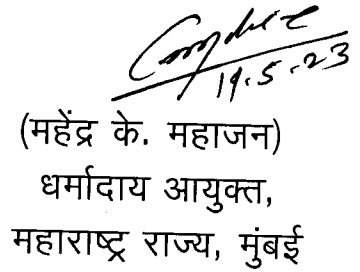 19.5.23
(महेंद्र के. महाजन)
धर्मादाय आयुक्त,
महाराष्ट्र राज्य, मुंबई